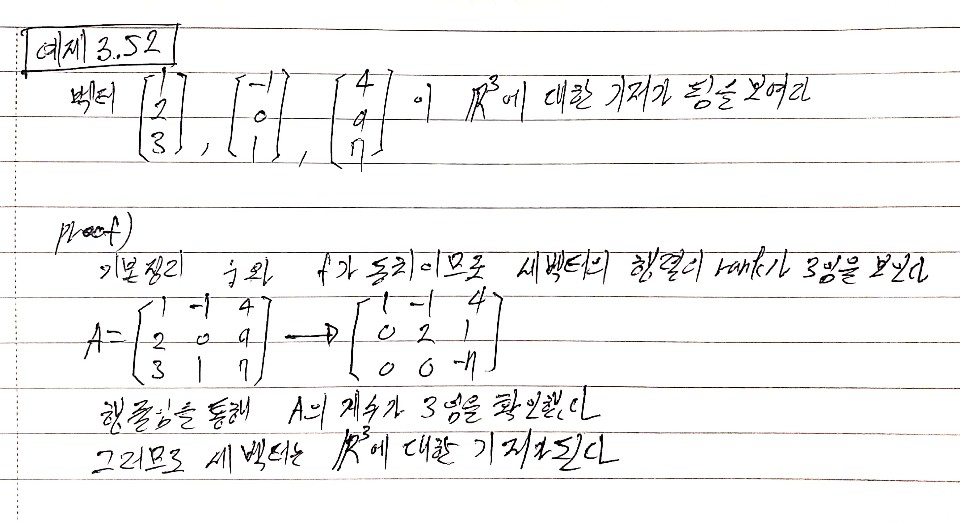 예제 3.52
벡터 [1 2 3], [-1 0 1], [4 9 7] 이 ℝ³에 대한 기저가 됨을 보여라
proof)
기본정리 j와 f가 동치이므로 세벡터의 행렬의 rank가 3임을 보인다
A= [1 -1 4
2 0 9
3 1 7] → [1 -1 4
0 2 1
0 0 -7]
행줄임을 통해 A의 계수가 3임을 확인했다
그러므로 세 벡터는 ℝ³에 대한 기저가된다